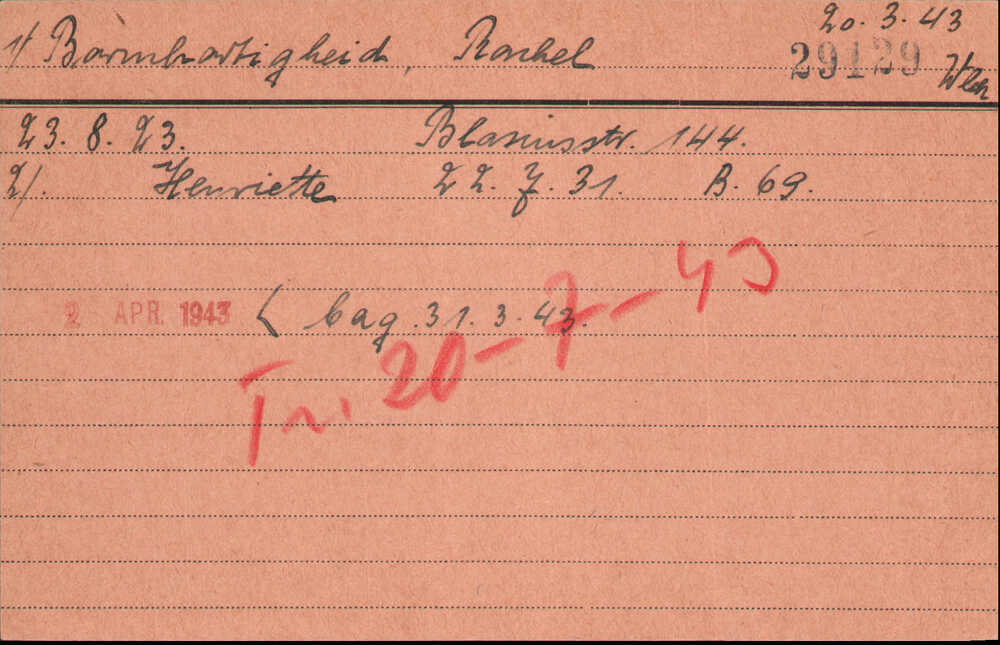 20.3.43
1/ Barmhartigheid, Rachel 29129
23. 8. 23. Blasiusstr. 144.
2/. Henriette 22. 7. 31. B. 69.
2 APR. 1943 ( bag. 31. 3. 43.
Tr. 20-7-43